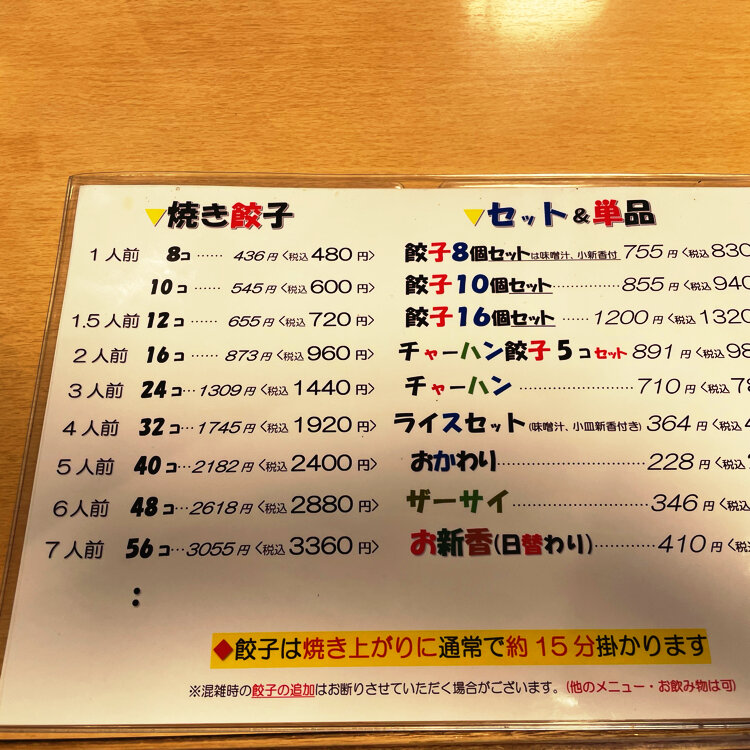 ▼焼き餃子
1人前 8コ…… 436円〈税込480円〉
10コ…… 545円〈税込600円〉
1.5人前 12コ…… 655円〈税込720円〉
2人前 16コ…… 873円〈税込960円〉
3人前 24コ…1309円〈税込1440円〉
4人前 32コ…1745円〈税込1920円〉
5人前 40コ…2182円〈税込2400円〉
6人前 48コ…2618円〈税込2880円〉
7人前 56コ…3055円〈税込3360円〉
：
▼セット&単品
餃子8個セットは味噌汁、小新香付 755円〈税込830
餃子10個セット…………855円〈税込940
餃子16個セット……1200円〈税込1320
チャーハン餃子5コセット 891円〈税込98
チャーハン…………………710円〈税込78
ライスセット(味噌汁、小皿新香付き) 364円〈税込4
おかわり…………………228円〈税込
ザーサイ…………………346円〈税込
お新香(日替わり)…………410円〈税込
◆餃子は焼き上がりに通常で約15分掛かります
※混雑時の餃子の追加はお断りさせていただく場合がございます。(他のメニュー・お飲み物は可)